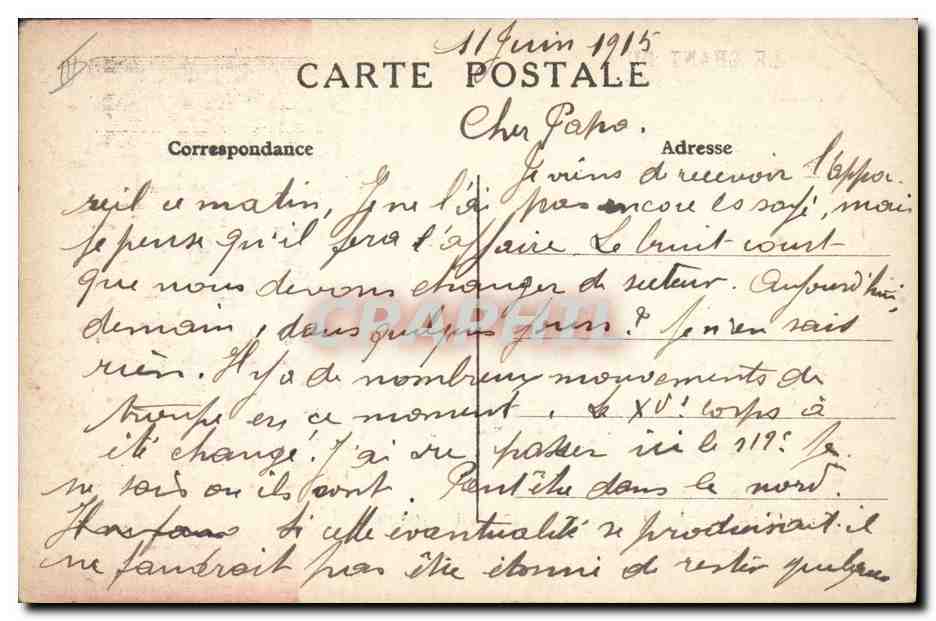 11 Juin 1915
CARTE POSTALE
Cher Papa.
Correspondance
Adresse
Je viens de recevoir l'appa-
reil ce matin, Je ne l'ai pas encore essayé, mais
je pense qu'il fera l'affaire Le bruit court
que nous devons changer de secteur. Aujourd'hui,
demain, dans quelques jours? Je n'en sait
rien. Il y a de nombreux mouvements de
troupe en ce moment. Le XVe corps à
été changé. J'ai vu passer ici le 112e Je
ne sais où ils sont. Peut être dans le nord.
Si cette éventualité se produisait il
ne faudrait pas être étonné de rester quelques
CPAPHIL